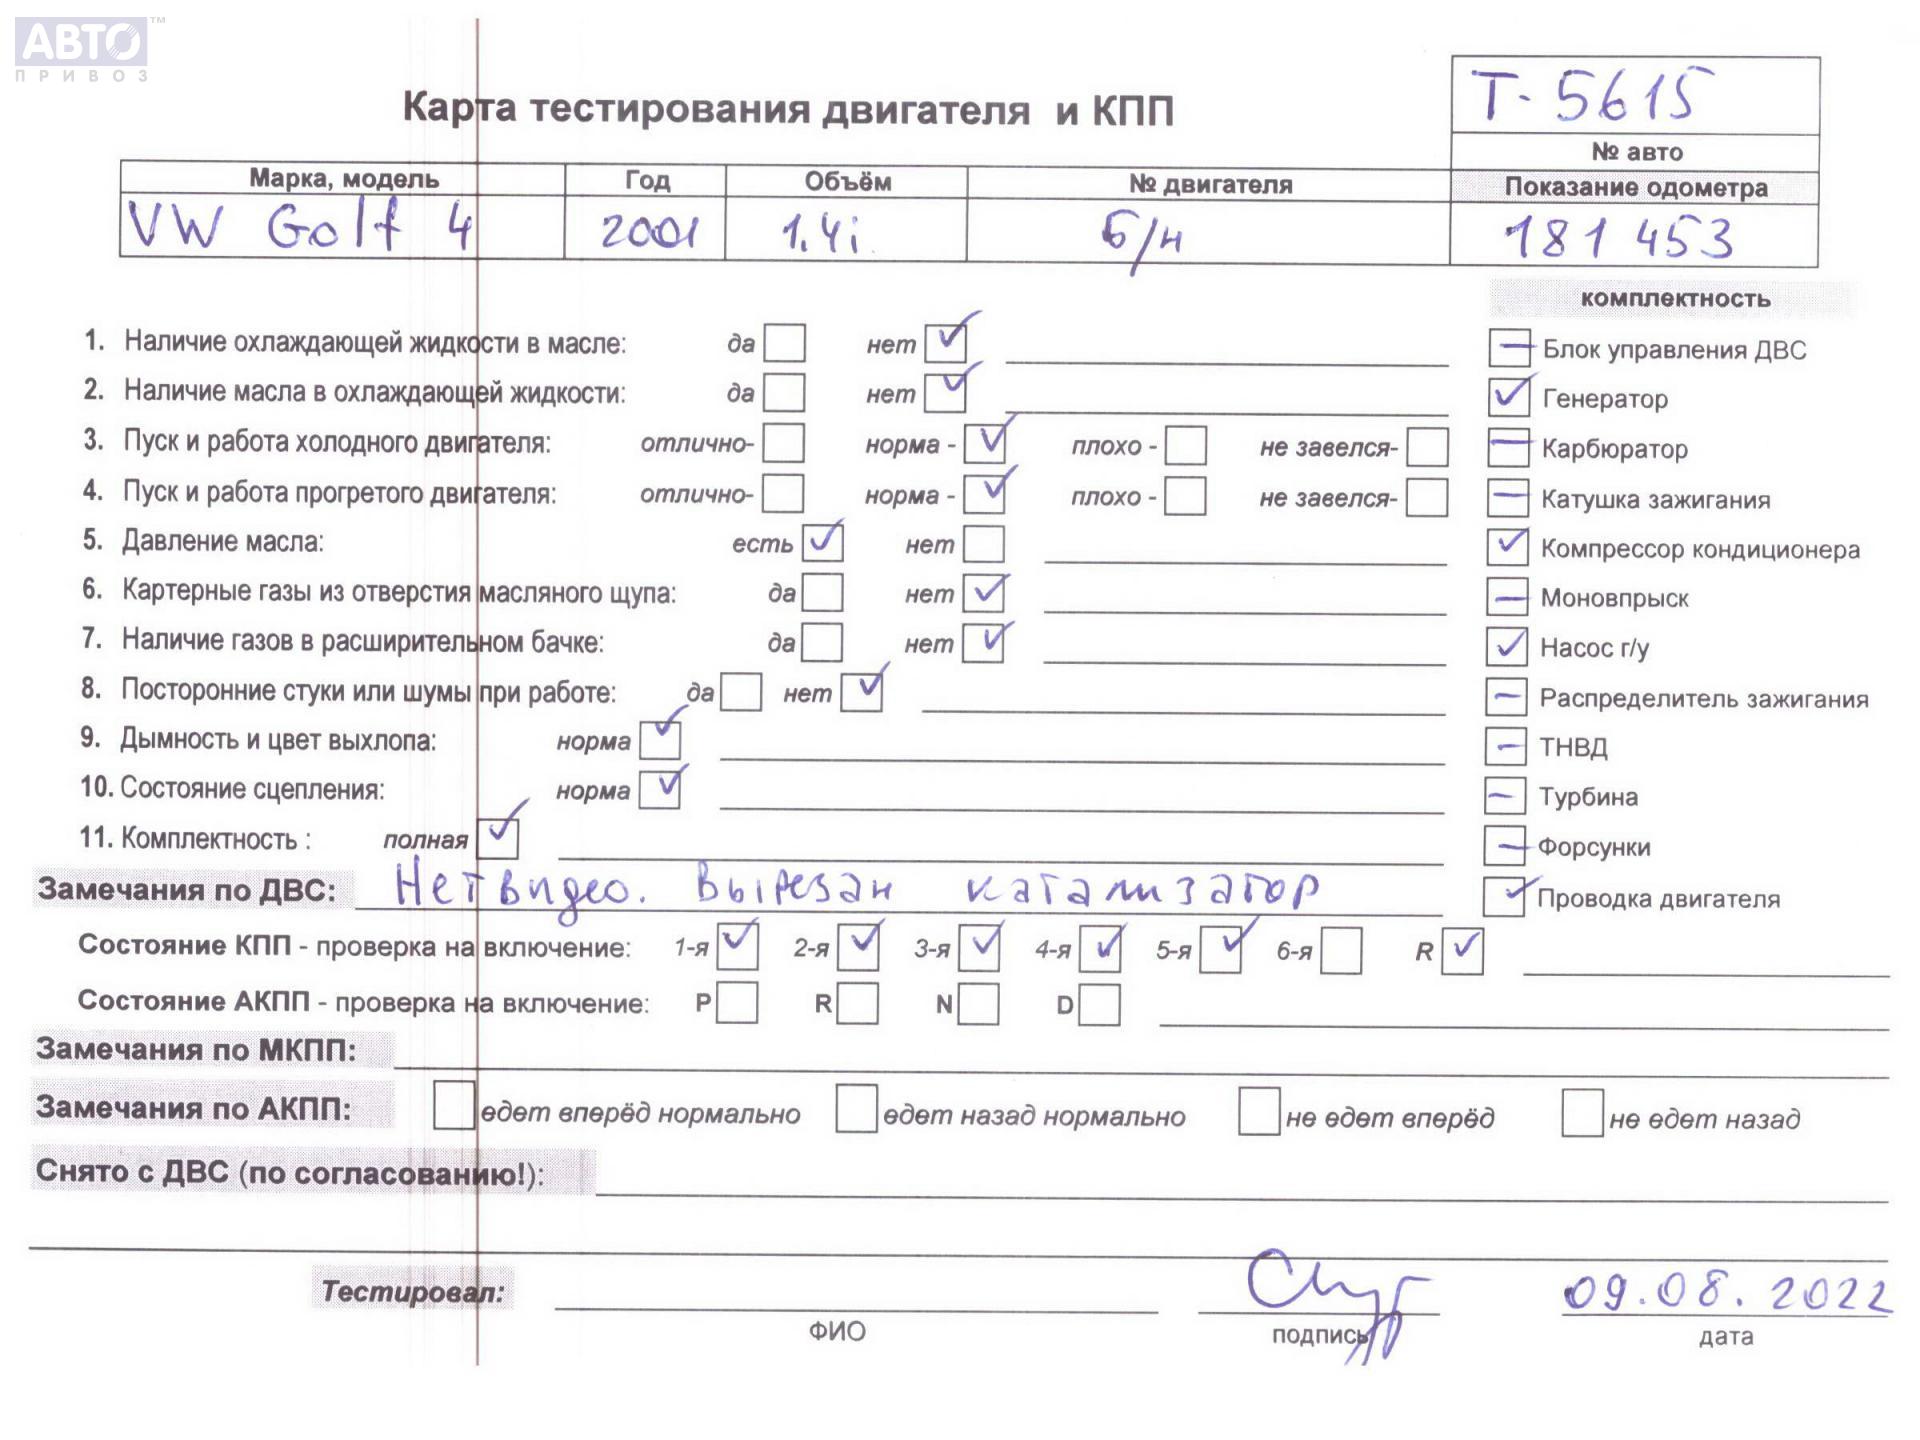 АВТО™
ПРИВОЗ
Т-5615
Карта тестирования двигателя и КПП
№ авто
Марка, модель Год Объём № двигателя Показание одометра
VW Golf 4 2001 1.4i б/н 181 453
комплектность
1. Наличие охлаждающей жидкости в масле: да нет ✓ — Блок управления ДВС
2. Наличие масла в охлаждающей жидкости: да нет ✓ ✓ Генератор
3. Пуск и работа холодного двигателя: отлично- норма - ✓ плохо - не завелся- — Карбюратор
4. Пуск и работа прогретого двигателя: отлично- норма - ✓ плохо - не завелся- — Катушка зажигания
5. Давление масла: есть ✓ нет ✓ Компрессор кондиционера
6. Картерные газы из отверстия масляного щупа: да нет ✓ — Моновпрыск
7. Наличие газов в расширительном бачке: да нет ✓ ✓ Насос г/у
8. Посторонние стуки или шумы при работе: да нет ✓ — Распределитель зажигания
9. Дымность и цвет выхлопа: норма ✓ — ТНВД
10. Состояние сцепления: норма ✓ — Турбина
11. Комплектность : полная ✓ — Форсунки
Замечания по ДВС: Нет видео. Вырезан катализатор ✓ Проводка двигателя
Состояние КПП - проверка на включение: 1-я ✓ 2-я ✓ 3-я ✓ 4-я ✓ 5-я ✓ 6-я R ✓
Состояние АКПП - проверка на включение: P R N D
Замечания по МКПП:
Замечания по АКПП: едет вперёд нормально едет назад нормально не едет вперёд не едет назад
Снято с ДВС (по согласованию!):
Тестировал: 09.08.2022
ФИО подпись дата